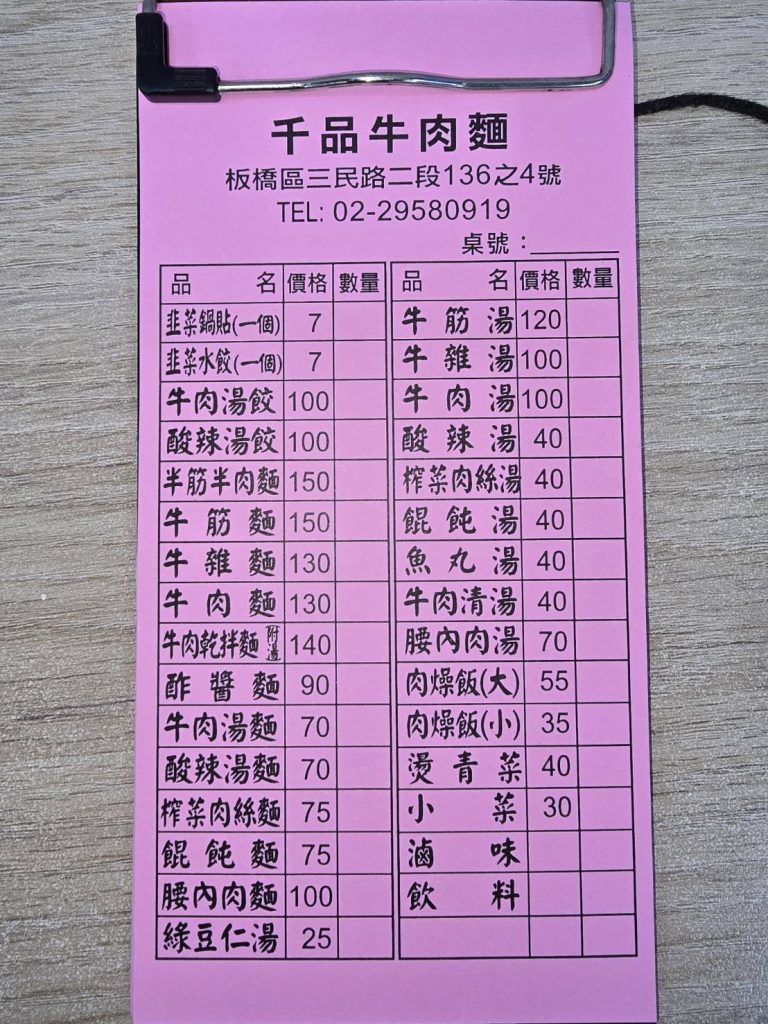 千品牛肉麵
板橋區三民路二段136之4號
TEL: 02-29580919
桌號：
品名 價格 數量
韭菜鍋貼(一個) 7
韭菜水餃(一個) 7
牛肉湯餃 100
酸辣湯餃 100
半筋半肉麵 150
牛筋麵 150
牛雜麵 130
牛肉麵 130
牛肉乾拌麵 附湯 140
酢醬麵 90
牛肉湯麵 70
酸辣湯麵 70
榨菜肉絲麵 75
餛飩麵 75
腰內肉麵 100
綠豆仁湯 25
品名 價格 數量
牛筋湯 120
牛雜湯 100
牛肉湯 100
酸辣湯 40
榨菜肉絲湯 40
餛飩湯 40
魚丸湯 40
牛肉清湯 40
腰內肉湯 70
肉燥飯(大) 55
肉燥飯(小) 35
燙青菜 40
小菜 30
滷味
飲料